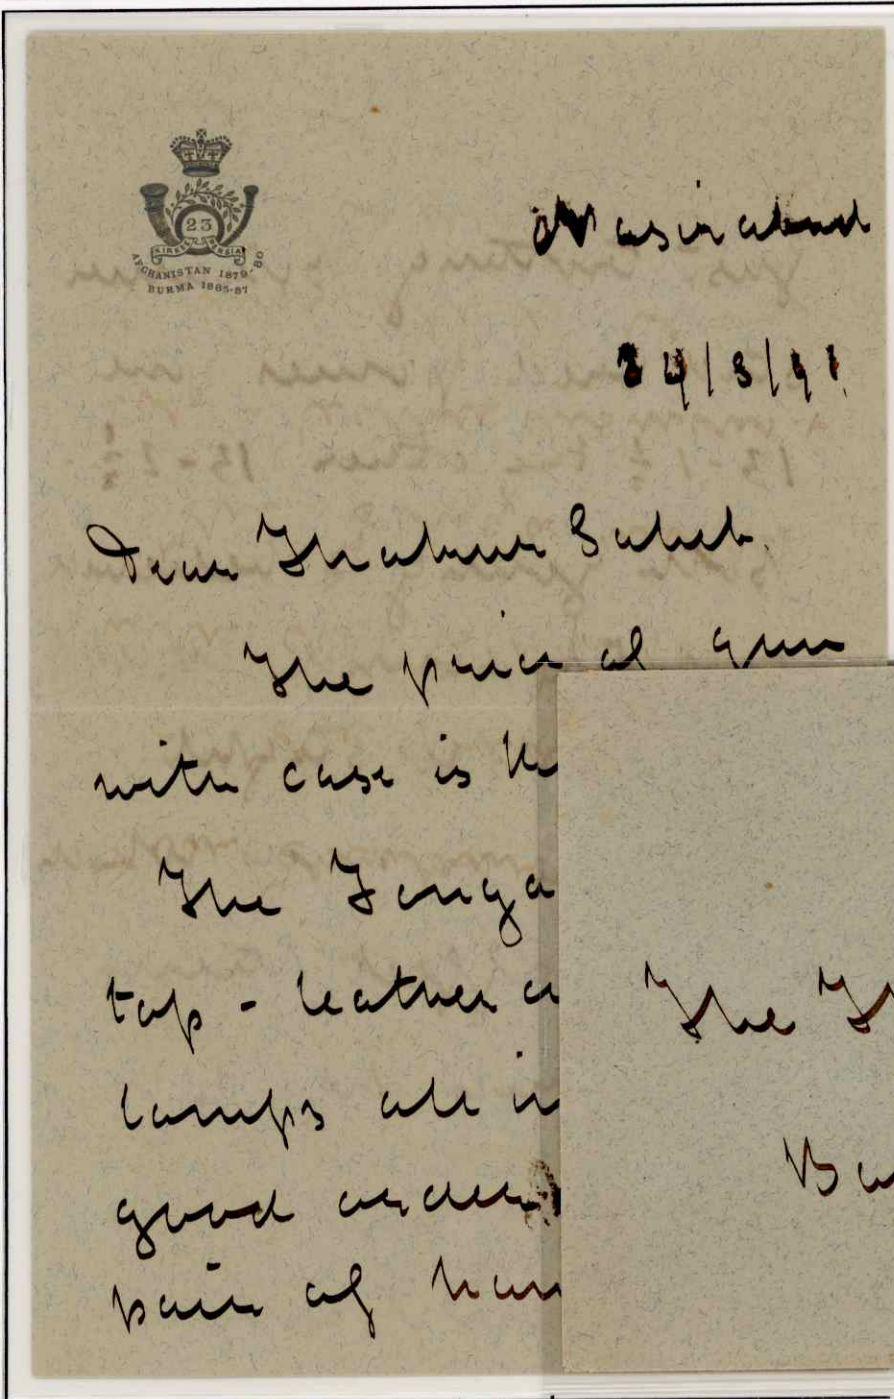 23
KIRKEE PERSIA
AFGHANISTAN 1879-80
BURMA 1885-87
Nasirabad
24/3/91
Dear Thakur Saheb.
The price of gun
with case is
The Tonga
top - leather
lamps all in
good order
pair of
The